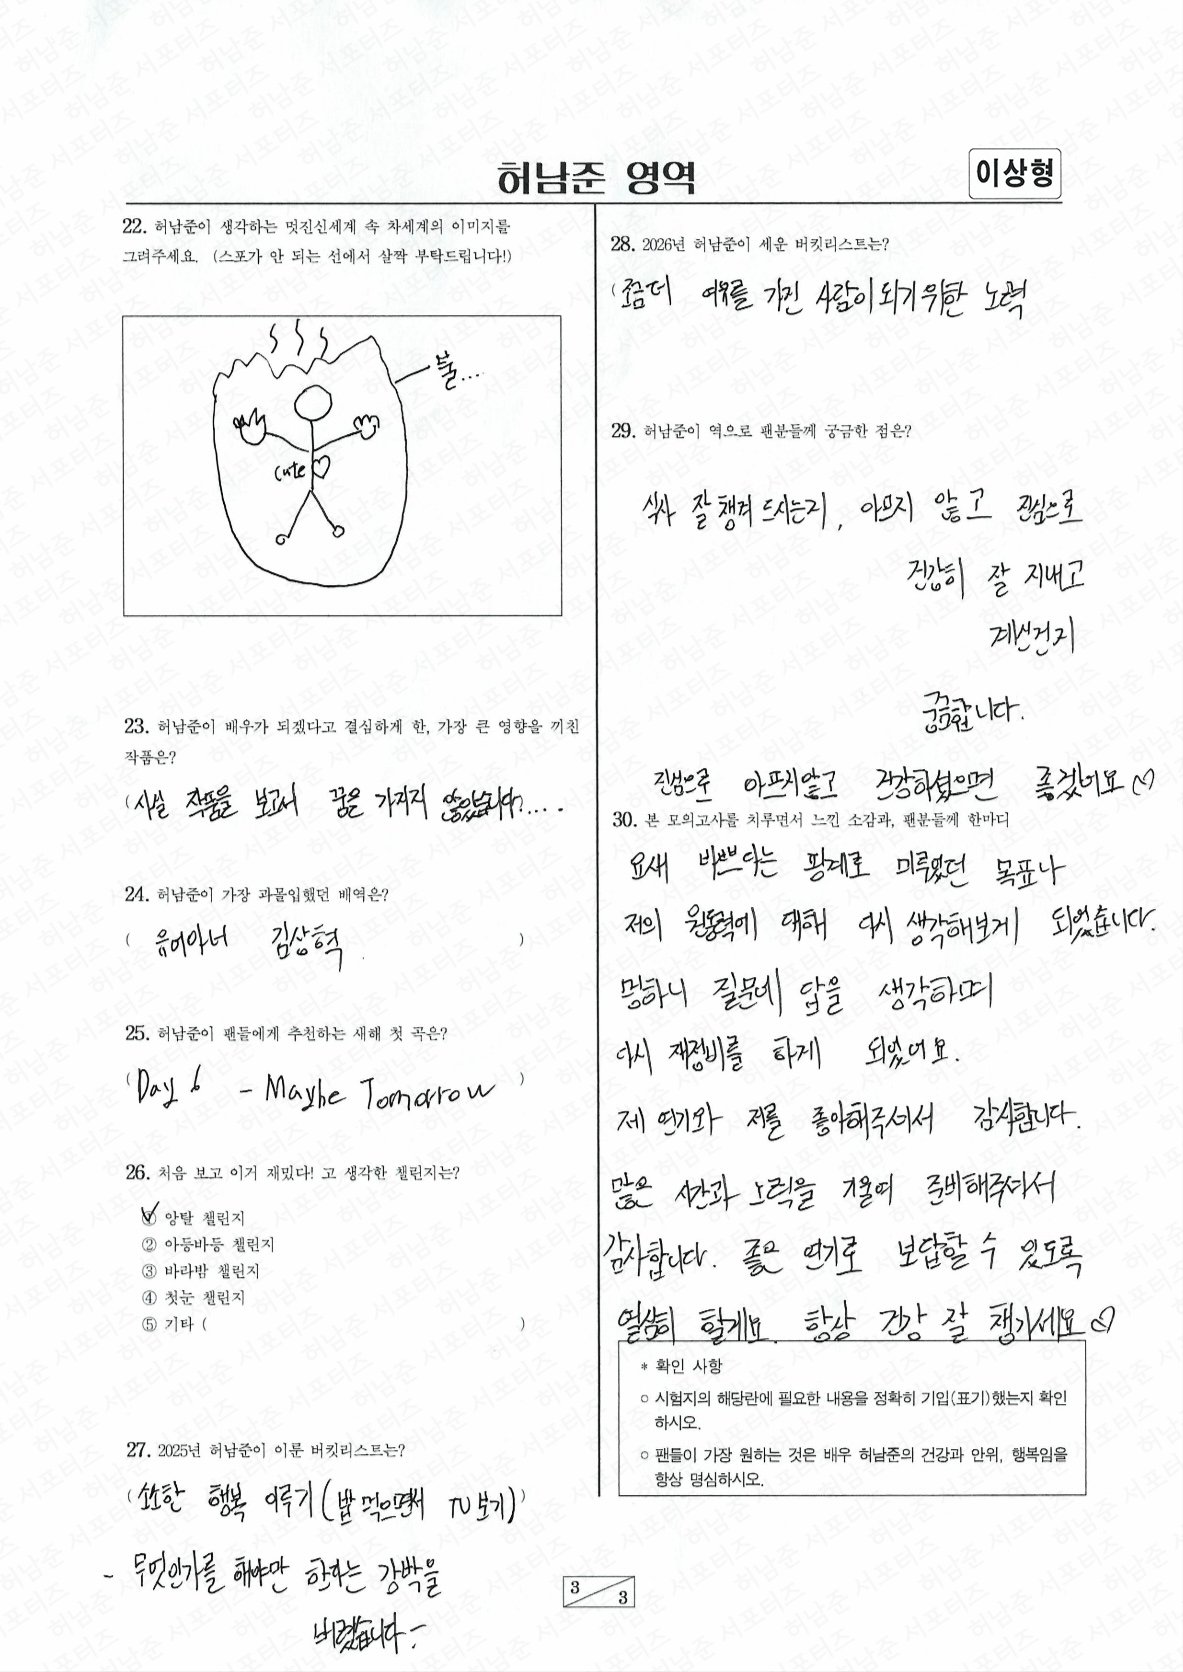 허남준 영역
이상형
22. 허남준이 생각하는 멋진신세계 속 차세계의 이미지를
그려주세요. (스포가 안 되는 선에서 살짝 부탁드립니다!)
불...
cute
23. 허남준이 배우가 되겠다고 결심하게 한, 가장 큰 영향을 끼친
작품은?
(사실 작품을 보고서 꿈을 가지지 않았습니다....
24. 허남준이 가장 과몰입했던 배역은?
( 유어아너 김상혁 )
25. 허남준이 팬들에게 추천하는 새해 첫 곡은?
(Day 6 - Maybe Tomorrow )
26. 처음 보고 이거 재밌다! 고 생각한 챌린지는?
① 앙탈 챌린지
② 아등바등 챌린지
③ 바라밤 챌린지
④ 첫눈 챌린지
⑤ 기타 ( )
27. 2025년 허남준이 이룬 버킷리스트는?
(소소한 행복 이루기(밥 먹으면서 TV 보기))
- 무엇인가를 해야만 한다는 강박을
버렸습니다-
28. 2026년 허남준이 세운 버킷리스트는?
(조금 더 여유를 가진 사람이 되기 위한 노력
29. 허남준이 역으로 팬분들께 궁금한 점은?
식사 잘 챙겨 드시는지, 아프지 않고 진심으로
건강히 잘 지내고
계신건지
궁금합니다.
진심으로 아프지않고 건강하셨으면 좋겠어요♡
30. 본 모의고사를 치루면서 느낀 소감과, 팬분들께 한마디
요새 바쁘다는 핑계로 미루었던 목표나
저의 원동력에 대해 다시 생각해보게 되었습니다.
멍하니 질문에 답을 생각하며
다시 재정비를 하게 되었어요.
제 연기와 저를 좋아해주셔서 감사합니다.
많은 시간과 노력을 기울여 준비해주셔서
감사합니다. 좋은 연기로 보답할 수 있도록
열심히 할게요. 항상 건강 잘 챙기세요♡
* 확인 사항
○ 시험지의 해당란에 필요한 내용을 정확히 기입(표기)했는지 확인
하시오.
○ 팬들이 가장 원하는 것은 배우 허남준의 건강과 안위, 행복임을
항상 명심하시오.
3
3
허남준 서포터즈